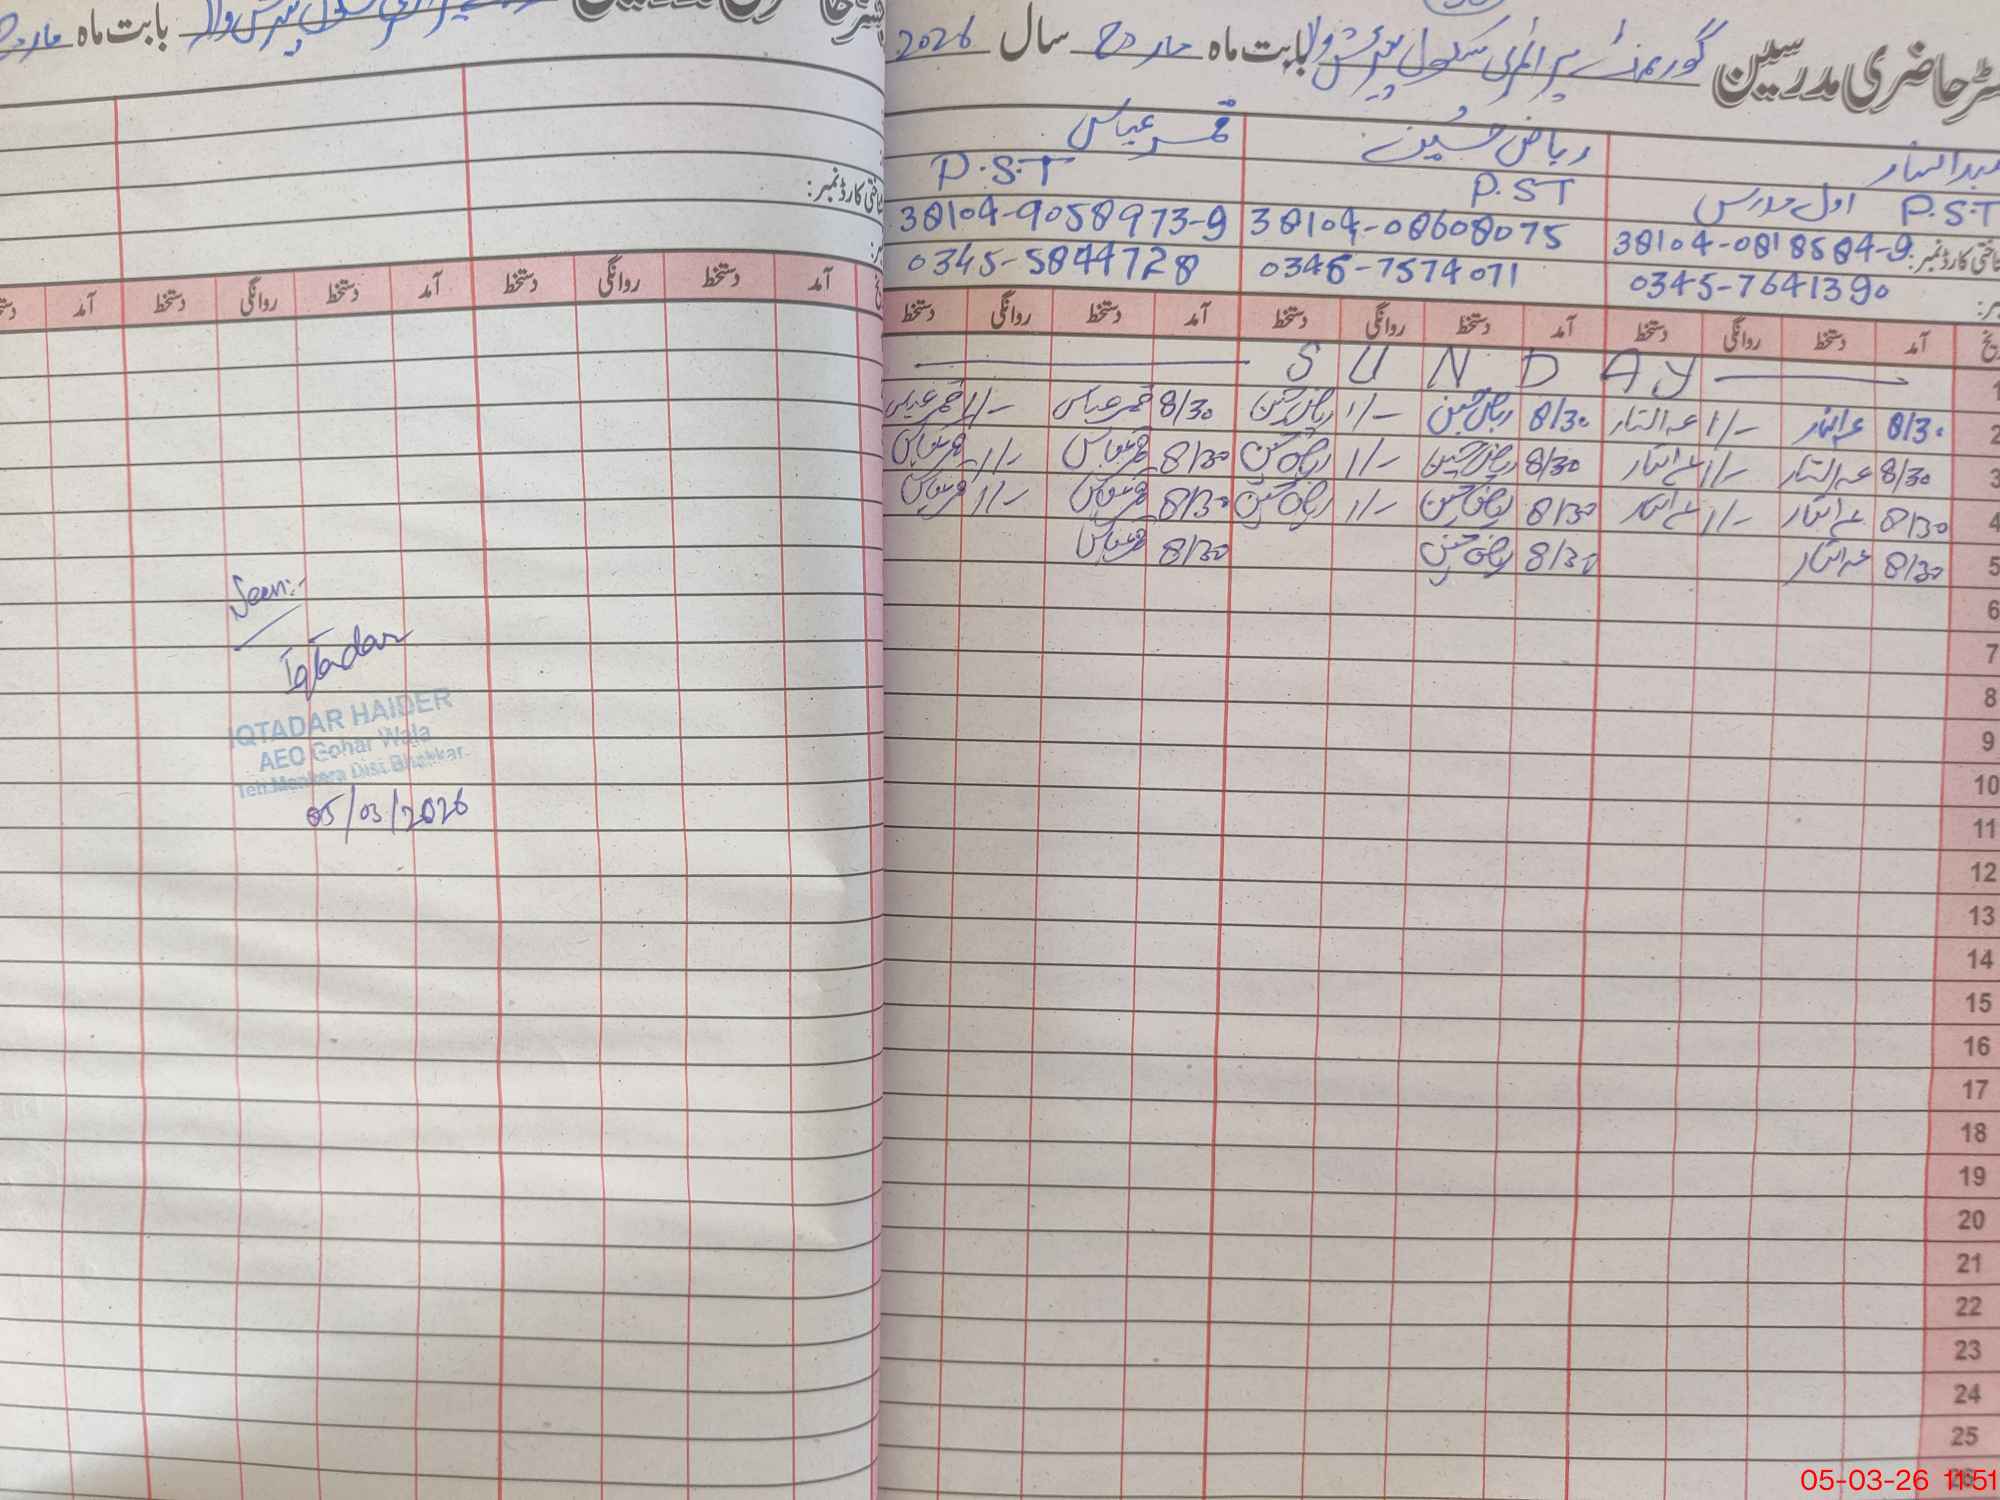 بابت ماہ مارچ
شناختی کارڈ نمبر:
آمد دستخط روانگی دستخط آمد دستخط روانگی دستخط آمد
Seen:-
Iqtadar
IQTADAR HAIDER
AEO Gohar Wala
Teh. Mankera Dist. Bhakkar.
05/03/2026
رجسٹر حاضری مدرسین گورنمنٹ پرائمری سکول بابت ماہ مارچ سال 2026
عبدالستار ریاض حسین قمر عباس
P.S.T اول مدرس P.ST P.S.T
شناختی کارڈ نمبر: 38104-0818584-9 38104-08608075 38104-9058973-9
0345-7641390 0346-7574071 0345-5844728
تاریخ آمد دستخط روانگی دستخط آمد دستخط روانگی دستخط آمد دستخط روانگی دستخط
1 SUNDAY
2 8/30 عبدالستار 1/- عبدالستار 8/30 ریاض حسین 1/- ریاض حسین 8/30 قمر عباس 1/- قمر عباس
3 8/30 عبدالستار 1/- عبدالستار 8/30 ریاض حسین 1/- ریاض حسین 8/30 قمر عباس 1/- قمر عباس
4 8/30 عبدالستار 1/- عبدالستار 8/30 ریاض حسین 1/- ریاض حسین 8/30 قمر عباس 1/- قمر عباس
5 8/30 عبدالستار 8/30 ریاض حسین 8/30 قمر عباس
6
7
8
9
10
11
12
13
14
15
16
17
18
19
20
21
22
23
24
25
26
05-03-26 11:51